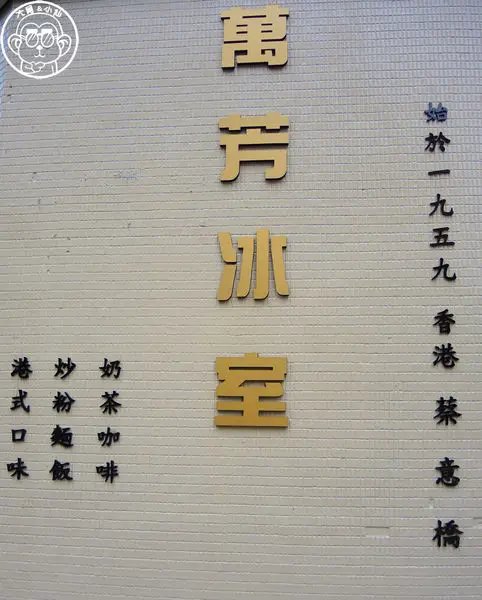 始於一九五九 香港 蔡意橋
萬芳冰室
奶茶咖啡
炒粉麵飯
港式口味